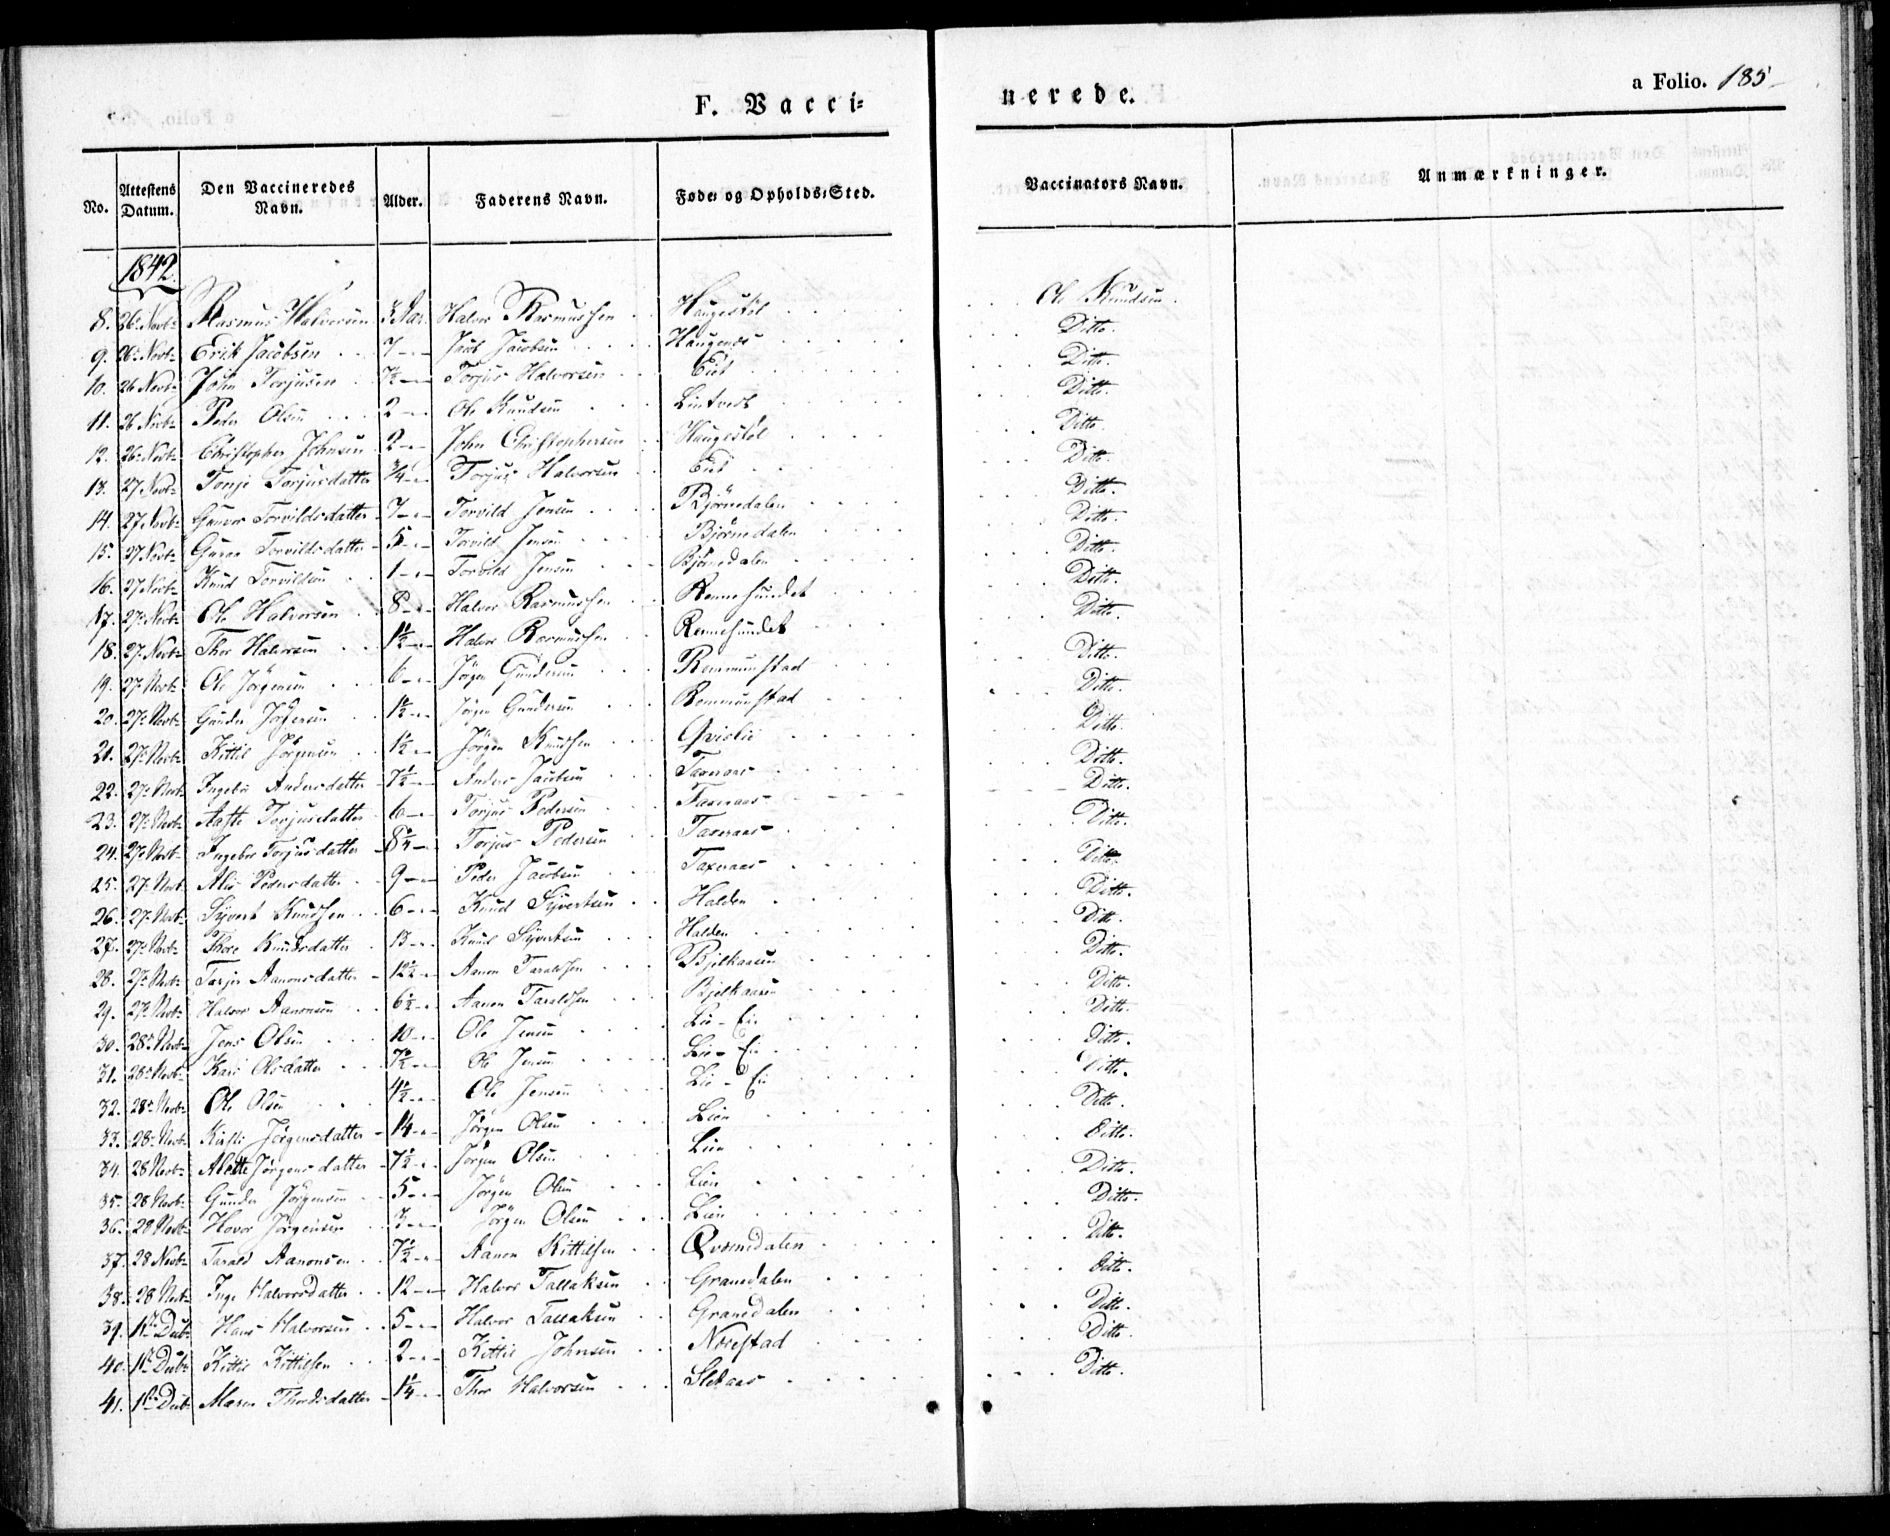 F. Vacci=
nerede.
a Folio. 185
No. Attestens Datum. Den Vaccineredes Navn. Alder. Faderens Navn. Føde= og Opholds=Sted. Vaccinators Navn. Anmærkninger.
1842
8. 26 Novbr Rasmus Halvorsen 3 Aar Halvor Rasmussen Haugestøl Ole Knudsen.
9. 26 Novbr Erik Jacobsen 7 Jacob Jacobsen Haugenes Ditto.
10. 26 Novbr John Torjusen 7½ Torjus Halvorsen Eiet Ditto.
11. 26 Novbr Peder Olsen 2 Ole Knudsen Lintvedt Ditto.
12. 26 Novbr Christopher Johnsen 2 John Christophersen Haugestøl Ditto.
13. 27 Novbr Tonje Torjusdatter ¾ Torjus Halvorsen Eiet Ditto.
14. 27 Novbr Gunvor Torvildsdatter 7 Torvild Jensen Bjørnedalen Ditto.
15. 27 Novbr Guroe Torvildsdatter 5 Torvild Jensen Bjørnedalen Ditto.
16. 27 Novbr Knud Torvildsen 1 Torvild Jensen Bjørnedalen Ditto.
17. 27 Novbr Ole Halvorsen 8 Halvor Rasmussen Rennesundet Ditto.
18. 27 Novbr Thor Halvorsen 1½ Halvor Rasmussen Rennesundet Ditto.
19. 27 Novbr Ole Jørgensen 6 Jørgen Gundersen Rommunstad Ditto.
20. 27 Novbr Gunder Jørgensen 1½ Jørgen Gundersen Rommunstad Ditto.
21. 27 Novbr Kittil Jørgensen 1½ Jørgen Knudsen Qvislie Ditto.
22. 27 Novbr Ingebor Andersdatter 7½ Anders Jacobsen Taxeraas Ditto.
23. 27 Novbr Aaste Torjusdatter 6 Torjus Pedersen Taxeraas Ditto.
24. 27 Novbr Ingebor Torjusdatter 8½ Torjus Pedersen Taxeraas Ditto.
25. 27 Novbr Alis Pedersdatter 9 Peder Jacobsen Taxeraas Ditto.
26. 27 Novbr Syvert Knudsen 6 Knud Syvertsen Halden Ditto.
27. 27 Novbr Thore Knudsdatter 13 Knud Syvertsen Halden Ditto.
28. 27 Novbr Tarjer Aanonsdatter 12½ Aanon Taraldsen Bjelkaasen Ditto.
29. 27 Novbr Halvor Aanonsen 6½ Aanon Taraldsen Bjelkaasen Ditto.
30. 28 Novbr Jens Olsen 10 Ole Jensen Lie-Eie Ditto.
31. 28 Novbr Kari Olsdatter 7½ Ole Jensen Lie-Eie Ditto.
32. 28 Novbr Ole Olsen 4½ Ole Jensen Lie-Eie Ditto.
33. 28 Novbr Kirsti Jørgensdatter 14 Jørgen Olsen Lien Ditto.
34. 28 Novbr Alette Jørgensdatter 7½ Jørgen Olsen Lien Ditto.
35. 28 Novbr Gunder Jørgensen 5 Jørgen Olsen Lien Ditto.
36. 28 Novbr Hovor Jørgensen Jørgen Olsen Lien Ditto.
37. 28 Novbr Tarald Aanonsen 7½ Aanon Kittilsen Qvænedalen Ditto.
38. 28 Novbr Inge Halvorsdatter 12 Halvor Tallaksen Granedalen Ditto.
39. 1ste Decbr Hans Halvorsen 5 Halvor Tallaksen Granedalen Ditto.
40. 1ste Decbr Kittil Kittilsen 2 Kittil Johnsen Norestad Ditto.
41. 1ste Decbr Maren Thordsdatter 1¼ Thor Halvorsen Sledaas Ditto.